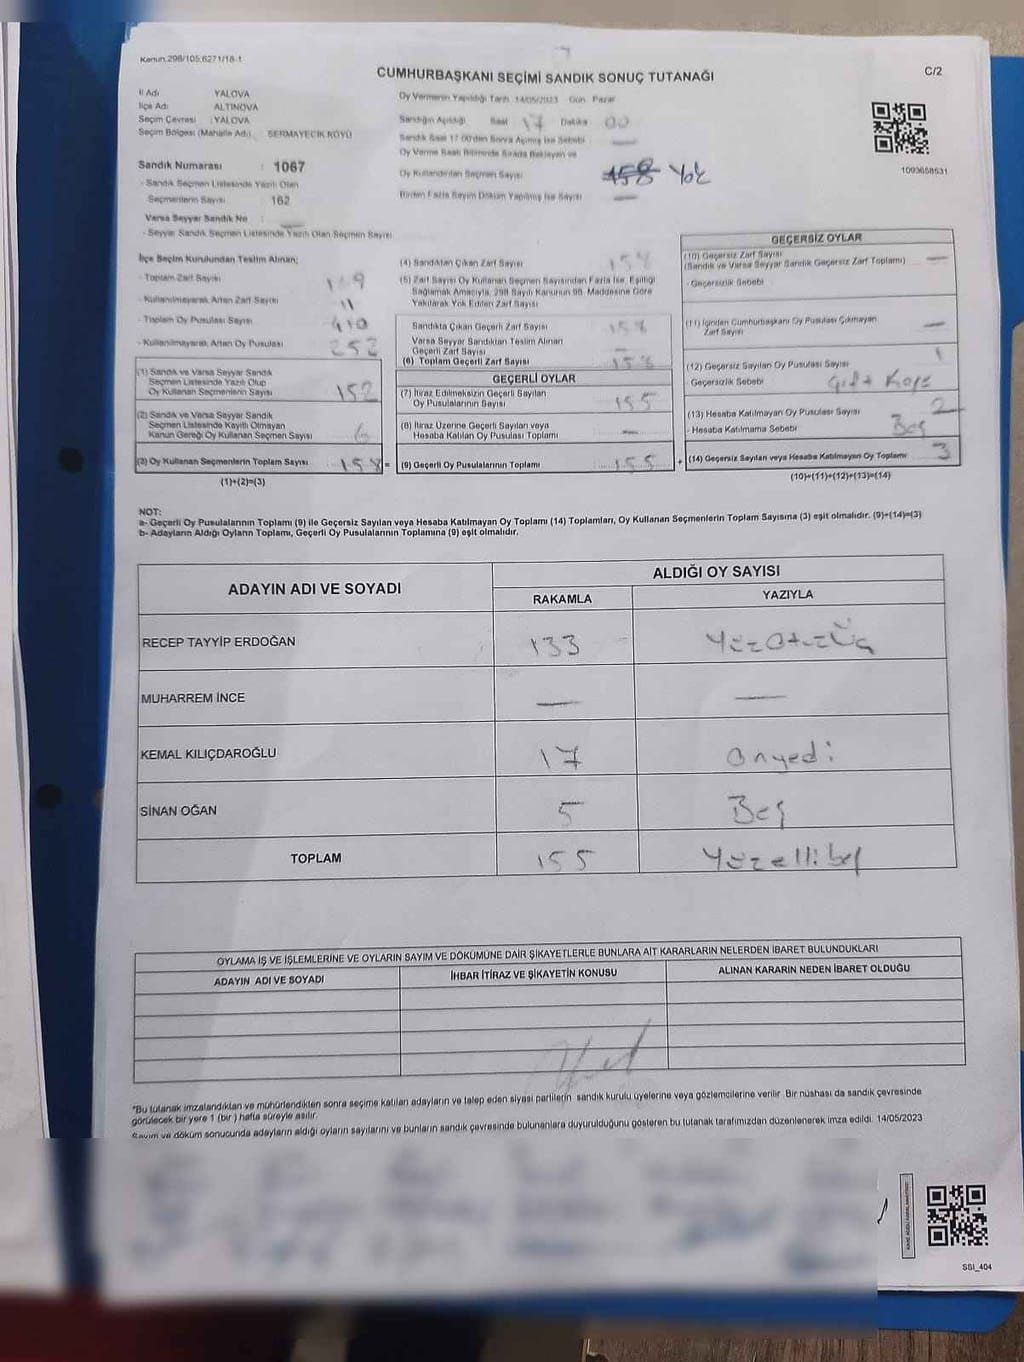 Kanun.298/105;6271/18-1
CUMHURBAŞKANI SEÇİMİ SANDIK SONUÇ TUTANAĞI
C/2
İl Adı YALOVA
İlçe Adı ALTINOVA
Seçim Çevresi :YALOVA
Seçim Bölgesi (Mahalle Adı) SERMAYECİK KÖYÜ
Oy Vermenin Yapıldığı Tarih 14/05/2023 Gün Pazar
Sandığın Açıldığı Saat 17 Dakika 00
Sandık Saat 17:00'den Sonra Açılmış İse Sebebi —
Oy Verme Saati Bitiminde Sırada Bekleyen ve
Oy Kullandırılan Seçmen Sayısı 158 Yok
Birden Fazla Sayım Döküm Yapılmış İse Sayısı —
1093658531
Sandık Numarası : 1067
- Sandık Seçmen Listesinde Yazılı Olan
Seçmenlerin Sayısı 162
Varsa Seyyar Sandık No —
- Seyyar Sandık Seçmen Listesinde Yazılı Olan Seçmen Sayısı
İlçe Seçim Kurulundan Teslim Alınan;
- Toplam Zarf Sayısı
- Kullanılmayarak Artan Zarf Sayısı 11
- Toplam Oy Pusulası Sayısı 410
- Kullanılmayarak Artan Oy Pusulası 252
(1) Sandık ve Varsa Seyyar Sandık
Seçmen Listesinde Yazılı Olup
Oy Kullanan Seçmenlerin Sayısı 152
(2) Sandık ve Varsa Seyyar Sandık
Seçmen Listesinde Kayıtlı Olmayan
Kanun Gereği Oy Kullanan Seçmen Sayısı 6
(3) Oy Kullanan Seçmenlerin Toplam Sayısı 158 =
(1)+(2)=(3)
(4) Sandıktan Çıkan Zarf Sayısı 158
(5) Zarf Sayısı Oy Kullanan Seçmen Sayısından Fazla İse, Eşitliği
Sağlamak Amacıyla, 298 Sayılı Kanunun 98. Maddesine Göre
Yakılarak Yok Edilen Zarf Sayısı
Sandıkta Çıkan Geçerli Zarf Sayısı 158
Varsa Seyyar Sandıktan Teslim Alınan
Geçerli Zarf Sayısı —
(6) Toplam Geçerli Zarf Sayısı 158
GEÇERLİ OYLAR
(7) İtiraz Edilmeksizin Geçerli Sayılan
Oy Pusulalarının Sayısı 155
(8) İtiraz Üzerine Geçerli Sayılan veya
Hesaba Katılan Oy Pusulası Toplamı —
(9) Geçerli Oy Pusulalarının Toplamı 155 +
GEÇERSİZ OYLAR
(10) Geçersiz Zarf Sayısı
(Sandık ve Varsa Seyyar Sandık Geçersiz Zarf Toplamı) —
- Geçersizlik Sebebi
(11) İçinden Cumhurbaşkanı Oy Pusulası Çıkmayan
Zarf Sayısı —
(12) Geçersiz Sayılan Oy Pusulası Sayısı 1
- Geçersizlik Sebebi
(13) Hesaba Katılmayan Oy Pusulası Sayısı 2
- Hesaba Katılmama Sebebi Boş
(14) Geçersiz Sayılan veya Hesaba Katılmayan Oy Toplamı 3
(10)+(11)+(12)+(13)=(14)
NOT:
a- Geçerli Oy Pusulalarının Toplamı (9) ile Geçersiz Sayılan veya Hesaba Katılmayan Oy Toplamı (14) Toplamları, Oy Kullanan Seçmenlerin Toplam Sayısına (3) eşit olmalıdır. (9)+(14)=(3)
b- Adayların Aldığı Oyların Toplamı, Geçerli Oy Pusulalarının Toplamına (9) eşit olmalıdır.
ADAYIN ADI VE SOYADI
ALDIĞI OY SAYISI
RAKAMLA YAZIYLA
RECEP TAYYİP ERDOĞAN 133 YüzOtuzÜç
MUHARREM İNCE — —
KEMAL KILIÇDAROĞLU 17 Onyedi
SİNAN OĞAN 5 Beş
TOPLAM 155 Yüzellibeş
OYLAMA İŞ VE İŞLEMLERİNE VE OYLARIN SAYIM VE DÖKÜMÜNE DAİR ŞİKAYETLERLE BUNLARA AİT KARARLARIN NELERDEN İBARET BULUNDUKLARI
ADAYIN ADI VE SOYADI İHBAR İTİRAZ VE ŞİKAYETİN KONUSU ALINAN KARARIN NEDEN İBARET OLDUĞU
*Bu tutanak imzalandıktan ve mühürlendikten sonra seçime katılan adayların ve talep eden siyasi partilerin sandık kurulu üyelerine veya gözlemcilerine verilir. Bir nüshası da sandık çevresinde
görülecek bir yere 1 (bir ) hafta süreyle asılır.
Sayım ve döküm sonucunda adayların aldığı oyların sayılarını ve bunların sandık çevresinde bulunanlara duyurulduğunu gösteren bu tutanak tarafımızdan düzenlenerek imza edildi. 14/05/2023
SSI_404